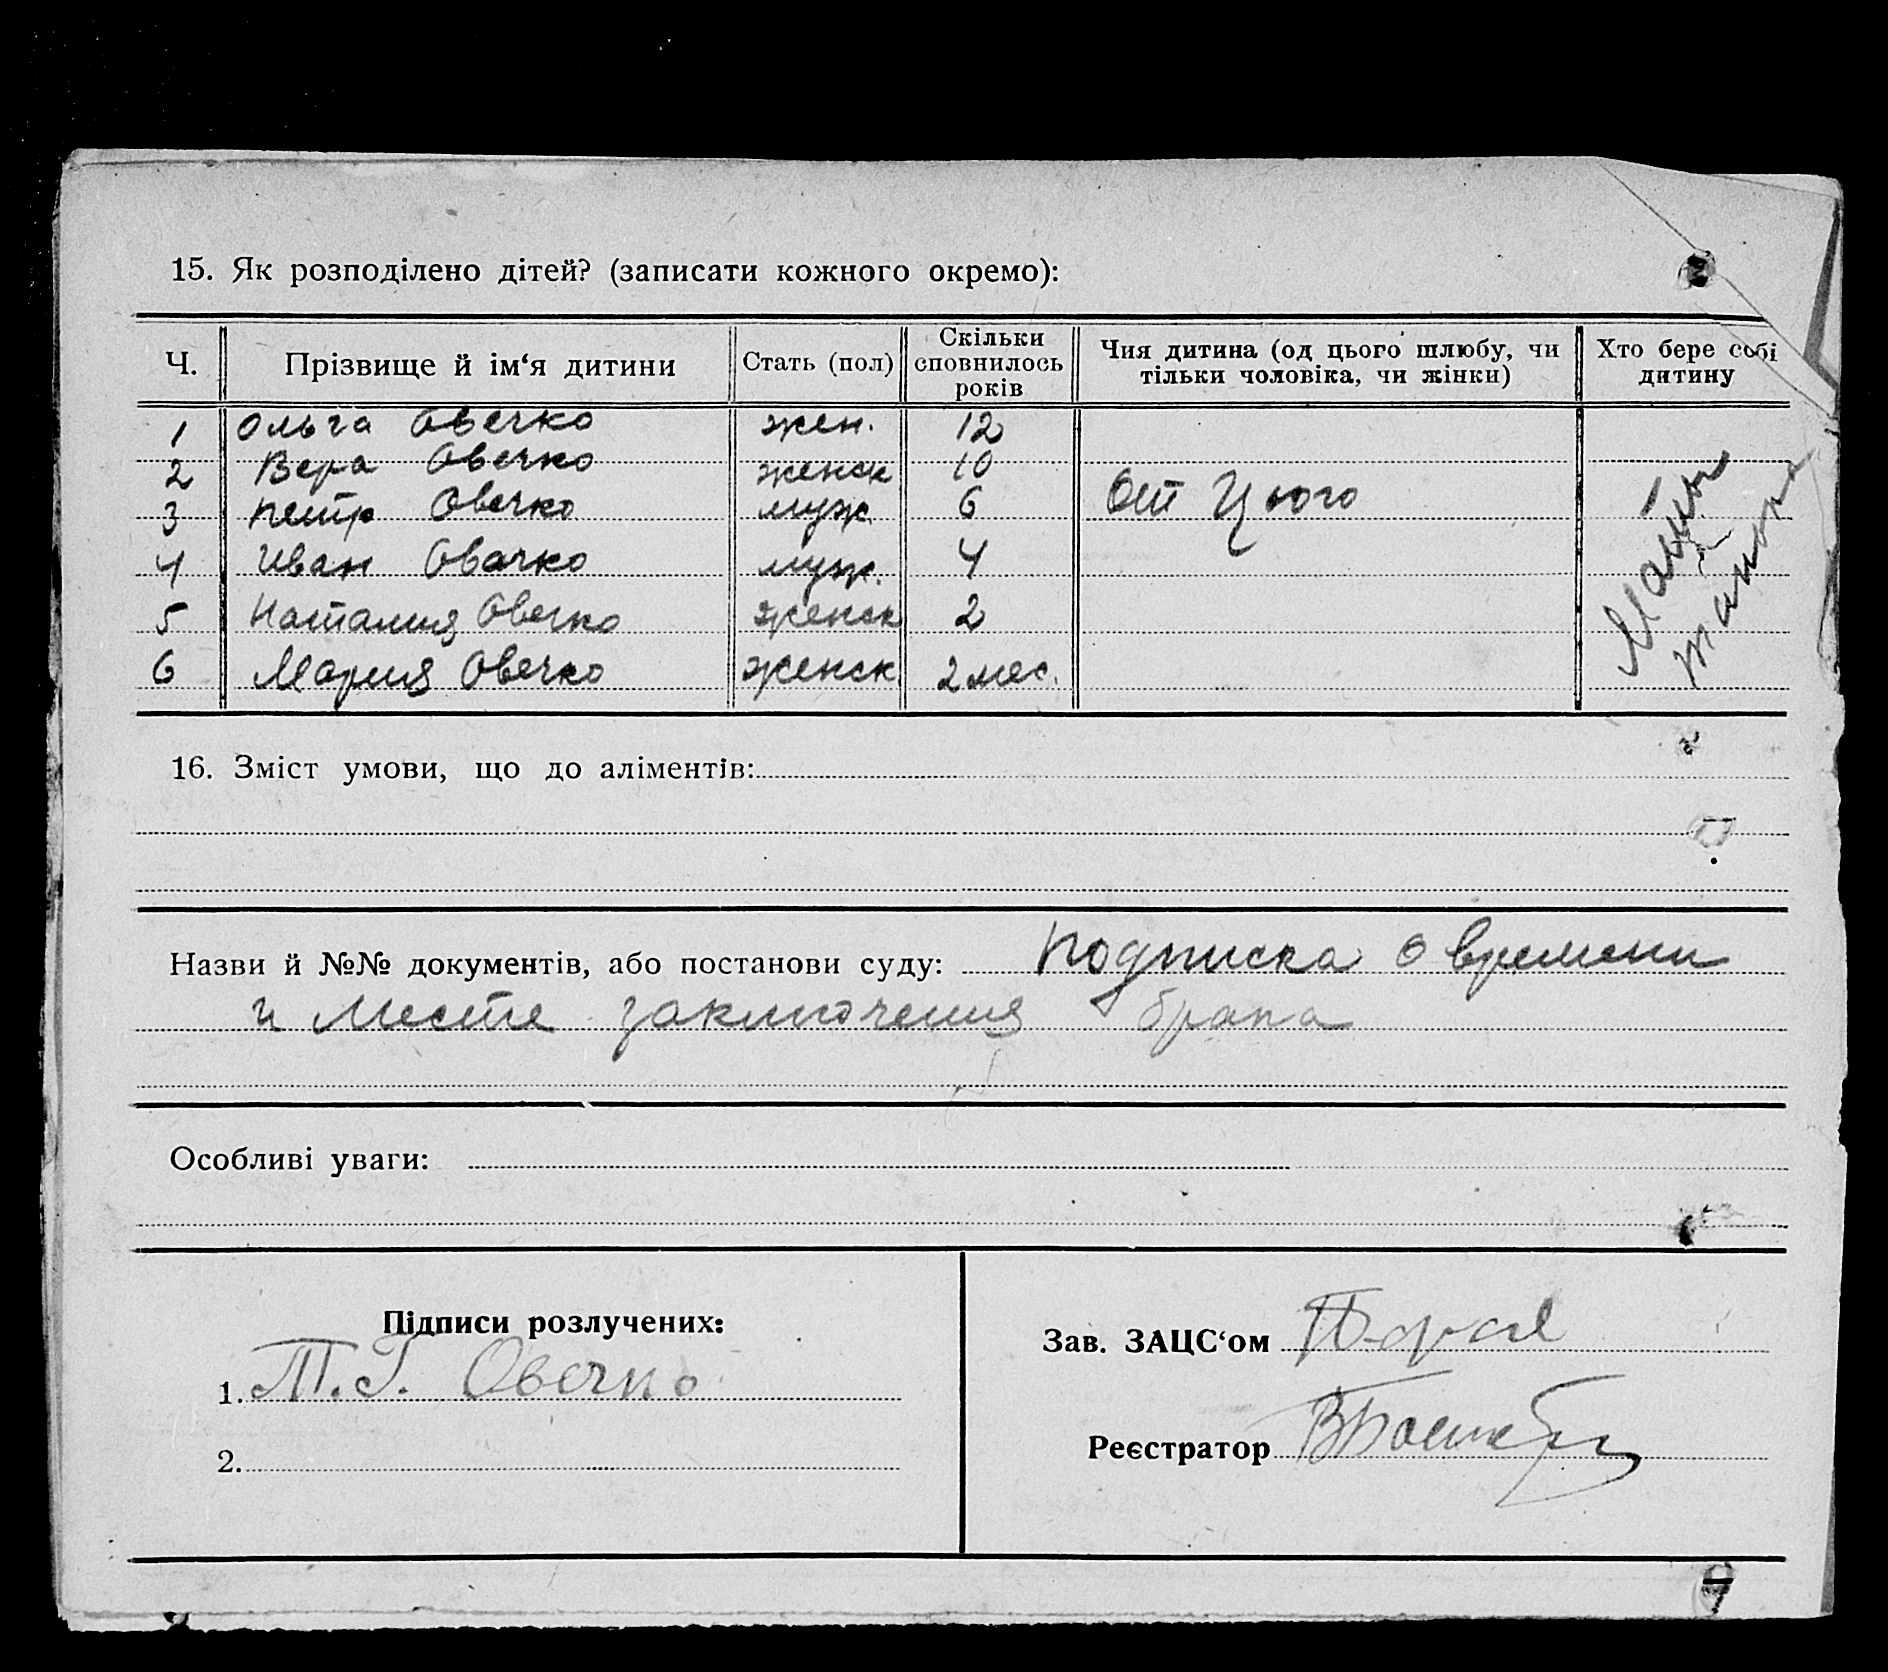 15. Як розподілено дітей? (записати кожного окремо):
Ч. Прізвище й ім‘я дитини Стать (пол) Скільки сповнилось років Чия дитина (од цього шлюбу, чи тільки чоловіка, чи жінки) Хто бере собі дитину
1 Ольга Овечко жен. 12
2 Вера Овечко женск 10
3 Петр Овечко муж 6 От Цього
4 Иван Овачко муж. 4
5 Наталия Овечко женск 2
6 Мария Овечко женск 2 мес.
16. Зміст умови, що до аліментів:
Назви й №№ документів, або постанови суду: Подписка о времени
и Месте заключения брака
Особливі уваги:
Підписи розлучених:
1. Т. Г. Овечко
2.
Зав. ЗАЦС‘ом
Реєстратор